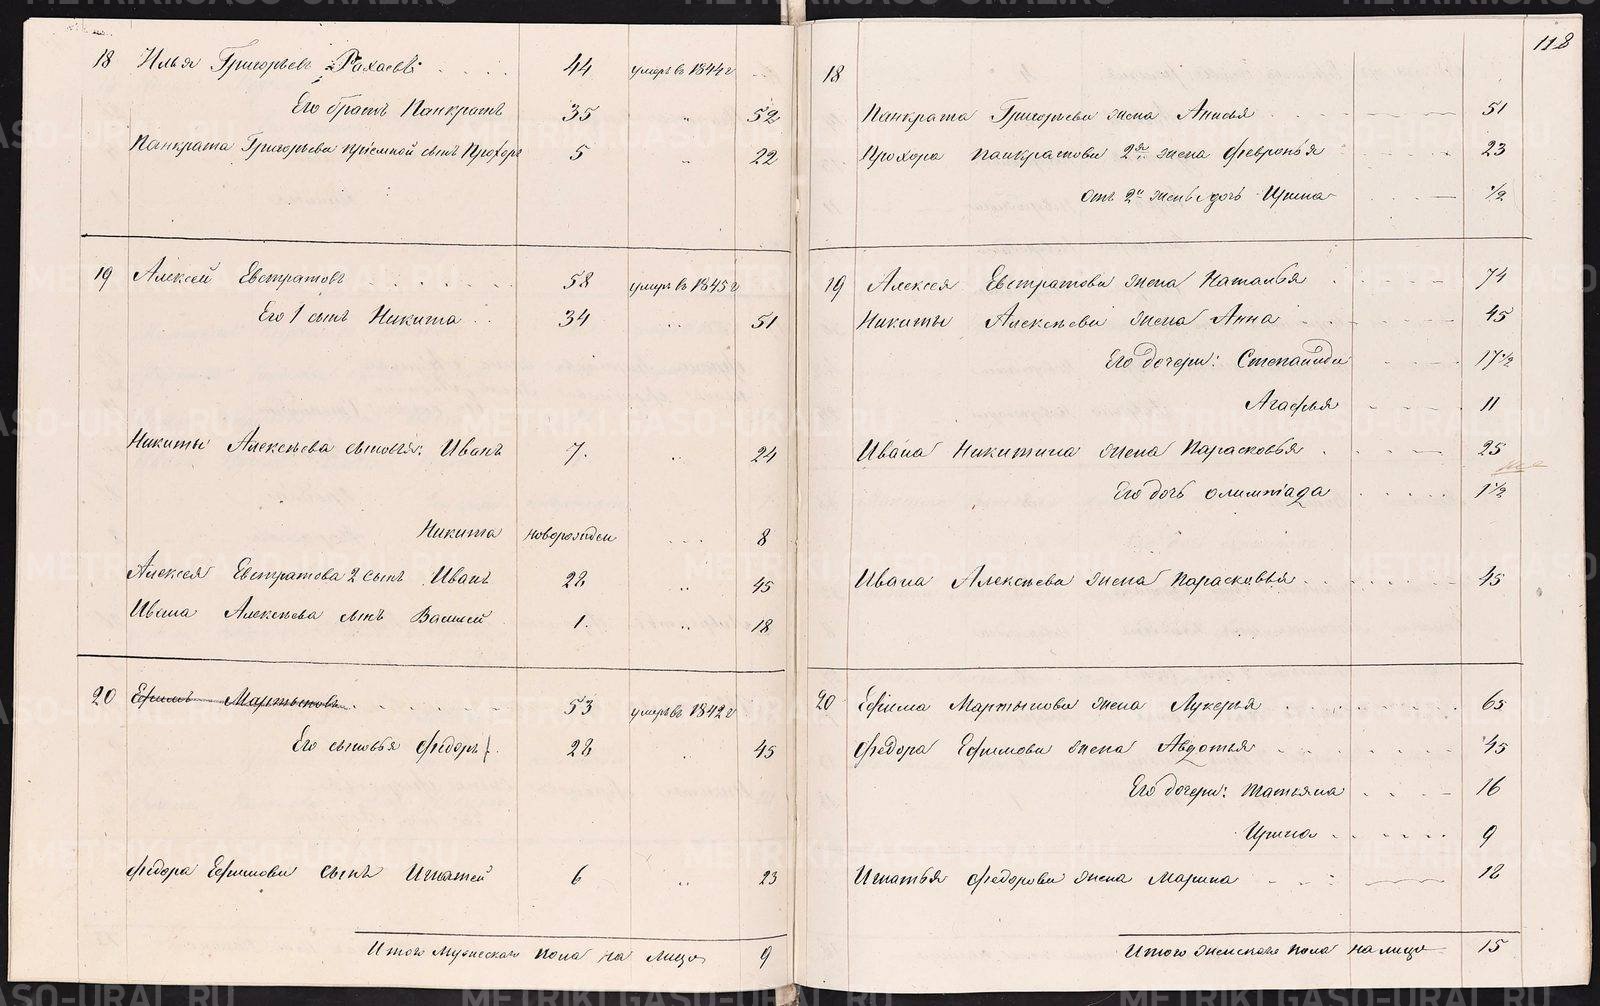 118
18 Илья Григорьевъ Рахаевъ 44 умеръ въ 1844 г
Его братъ Панкратъ 35 " 52
Панкрата Григорьева приемной сынъ Прохоръ 5 " 22
19 Алексей Евстратовъ 58 умеръ въ 1845 г
Его 1 сынъ Никита 34 " 51
Никиты Алексѣева сыновья: Иванъ 7. " 24
Никита новорожден 8
Алексея Евстратова 2 сынъ Иванъ 28 " 45
Ивана Алексѣева сынъ Василей 1. " 18
20 Ефимъ Мартыновъ 53 умеръ въ 1842 г
Его сыновья Федоръ 1. 28 " 45
Федора Ефимова сынъ Игнатей 6 " 23
Итого мужескаго пола на лицо 9
18
Панкрата Григорьева жена Анисья 51
Прохора Панкратова 2я жена Февронья 23
отъ 2й жены дочь Ирина 1/2
19 Алексея Евстратова жена Наталья 74
Никиты Алексѣева жена Анна 45
Его дочери: Степанида 17 1/2
Агафья 11
Ивана Никитина жена Парасковья 25
Его дочь Олимпіада 1 1/2
Ивана Алексѣева жена Парасковья 45
20 Ефима Мартынова жена Лукерья 65
Федора Ефимова жена Авдотья 45
Его дочери: Татьяна 16
Ирина 9
Игнатья Федорова жена Марина 18
Итого женскаго пола на лицо 15
METRIKI.GASO-URAL.RU